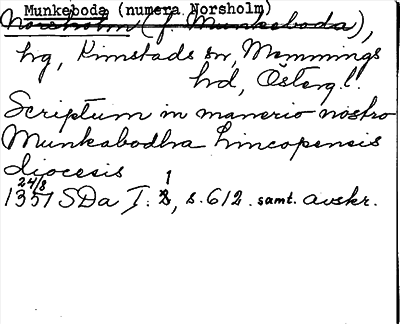 Munkeboda (numera Norsholm)
Norsholm (f. Munkeboda),
hg, Kimstads sn, Memmings
hd, Österg l.
Scriptum in manerio nostro
Munkabodha Lincopensis
diocesis
24/8 1
1351 SDa I. 8, s. 612. samt. avskr.